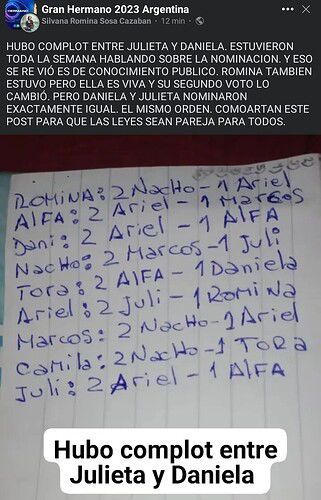 Gran Hermano 2023 Argentina
Silvana Romina Sosa Cazaban · 12 min ·
HUBO COMPLOT ENTRE JULIETA Y DANIELA. ESTUVIERON
TODA LA SEMANA HABLANDO SOBRE LA NOMINACION. Y ESO
SE RE VIÓ ES DE CONOCIMIENTO PUBLICO. ROMINA TAMBIEN
ESTUVO PERO ELLA ES VIVA Y SU SEGUNDO VOTO LO
CAMBIÓ. PERO DANIELA Y JULIETA NOMINARON
EXACTAMENTE IGUAL. EL MISMO ORDEN. COMOARTAN ESTE
POST PARA QUE LAS LEYES SEAN PAREJA PARA TODOS.
ROMINA: 2 NACHO - 1 Ariel
AlFA: 2 Ariel - 1 MARCOS
Dani: 2 Ariel - 1 AlFA
NACHO: 2 MARCOS - 1 Juli
Tora: 2 AlFA - 1 Daniela
Ariel: 2 Juli - 1 ROMINA
MARCOS: 2 NACHO - 1 Ariel
CAMILA: 2 NACHO - 1 TORA
Juli: 2 Ariel - 1 AlFA
Hubo complot entre
Julieta y Daniela